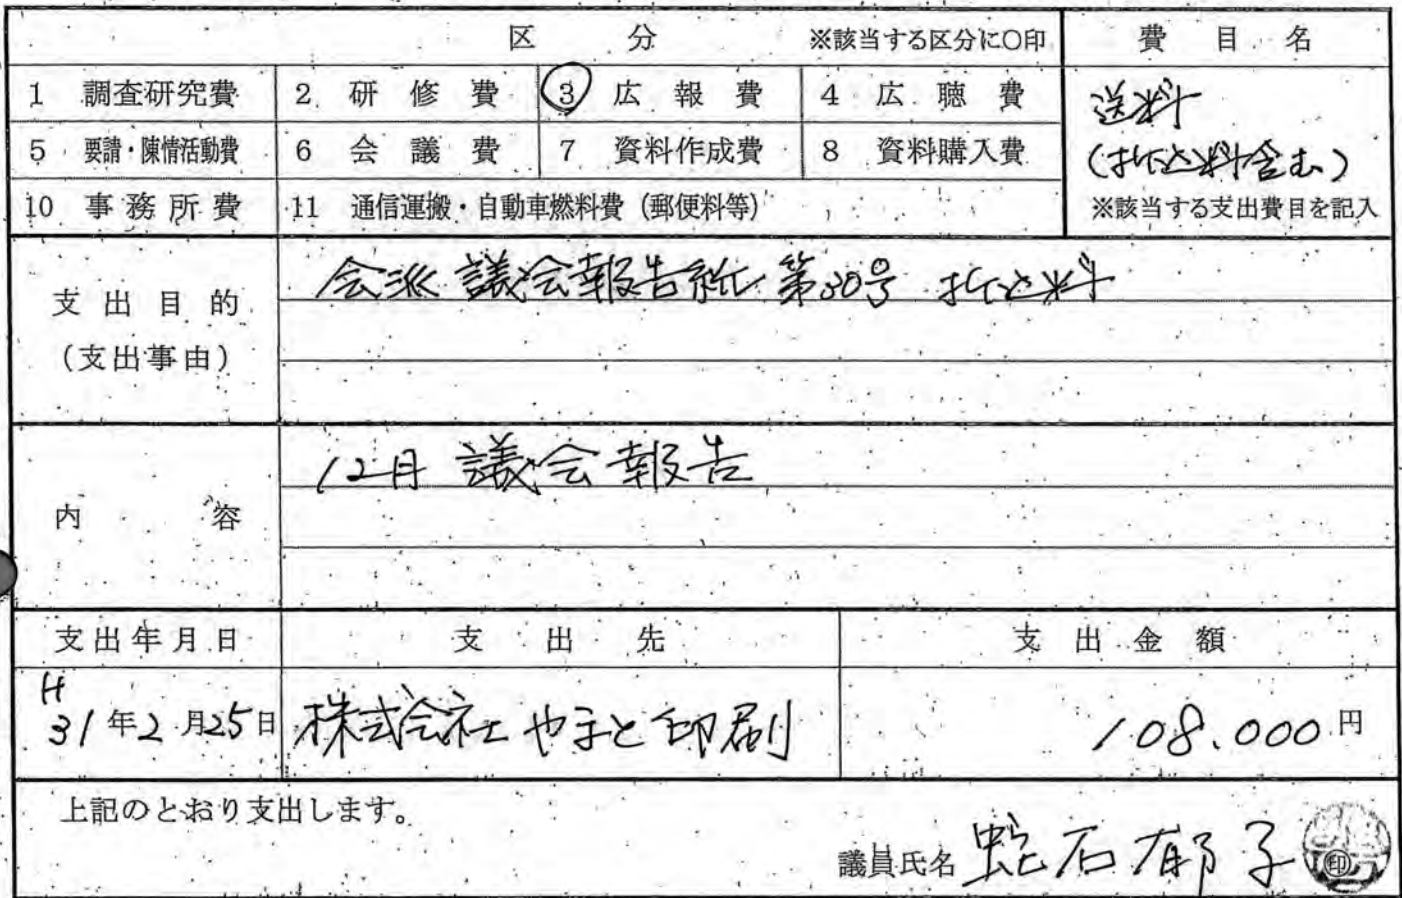 区分 ※該当する区分に○印 費目名
1 調査研究費 2 研修費 3 広報費 4 広聴費 送料
5 要請・陳情活動費 6 会議費 7 資料作成費 8 資料購入費 (折込料含む)
10 事務所費 11 通信運搬・自動車燃料費(郵便料等) ※該当する支出費目を記入
支出目的
(支出事由)
会派 議会報告紙 第30号 折込料
内容
12月 議会報告
支出年月日 支出先 支出金額
H31年2月25日 株式会社 やまと印刷 108.000円
上記のとおり支出します。
議員氏名 蛇石郁子 印